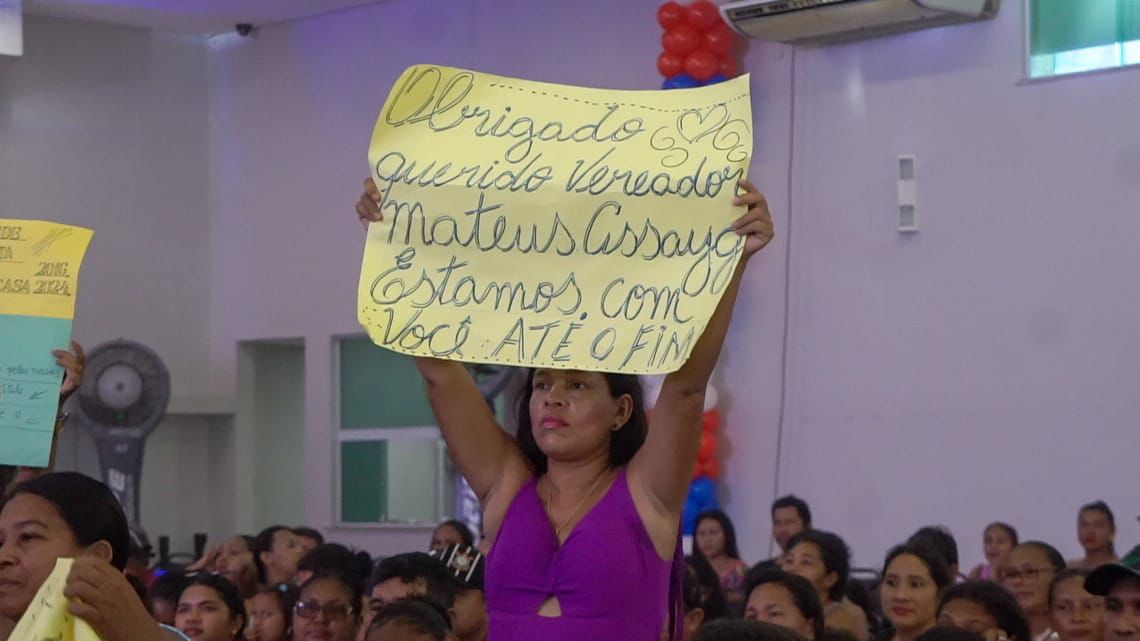 Obrigado
querido Vereador
Mateus Assayg
Estamos com
Você ATÉ O FIM
DE
TA 2016
CASA 2024